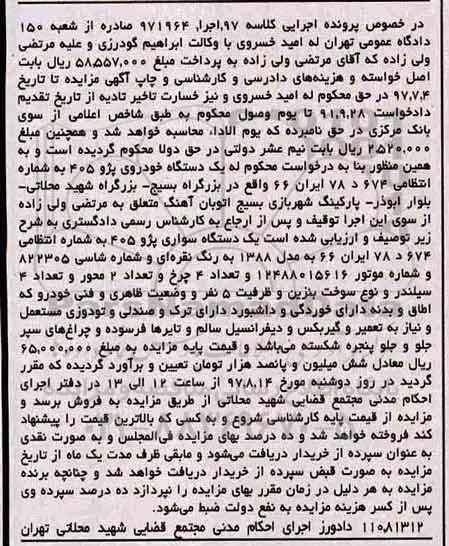 در خصوص پرونده اجرایی کلاسه ۹۷،اجرا, ۹۷۱۹۶۴ صادره از شعبه ۱۵۰
دادگاه عمومی تهران له امید خسروی با وکالت ابراهیم گودرزی و علیه مرتضی
ولی زاده که آقای مرتضی ولی زاده به پرداخت مبلغ ۵۸,۵۵۷,۰۰۰ ریال بابت
اصل خواسته و هزینه‌های دادرسی و کارشناسی و چاپ آگهی مزایده تا تاریخ
۹۷,۷,۴ در حق محکوم له امید خسروی و نیز خسارت تاخیر تادیه از تاریخ تقدیم
دادخواست ۹۱,۹,۲۸ تا یوم وصول محکوم به طبق شاخص اعلامی از سوی
بانک مرکزی در حق نامبرده که یوم الادا، محاسبه خواهد شد و همچنین مبلغ
۲۵۲۰,۰۰۰ ریال بابت نیم عشر دولتی در حق دولا محکوم گردیده است و به
همین منظور بنا به درخواست محکوم له یک دستگاه خودروی پژو ۴۰۵ به شماره
انتظامی ۶۷۴ د ۷۸ ایران ۶۶ واقع در بزرگراه بسیج- بزرگراه شهید محلاتی-
بلوار ابوذر- پارکینگ شهربازی بسیج اتوبان آهنگ متعلق به مرتضی ولی زاده
از سوی این اجرا توقیف و پس از ارجاع به کارشناس رسمی دادگستری به شرح
زیر توصیف و ارزیابی شده است یک دستگاه سواری پژو ۴۰۵ به شماره انتظامی
۶۷۴ د ۷۸ ایران ۶۶ به مدل ۱۳۸۸ به رنگ نقره‌ای و شماره شاسی ۸۲۲۳۰۵
و شماره موتور ۱۲۴۸۸۰۱۵۶۱۶ و تعداد ۴ چرخ و تعداد ۲ محور و تعداد ۴
سیلندر و نوع سوخت بنزین و ظرفیت ۵ نفر و وضعیت ظاهری و فنی خودرو که
اطاق و بدنه دارای خوردگی و داشبورد دارای ترک و صندلی و تودوزی مستعمل
و نیاز به تعمیر و گیربکس و دیفرانسیل سالم و تایرها فرسوده و چراغ‌های سپر
جلو و جلو پنجره شکسته می‌باشد و قیمت پایه مزایده به مبلغ ۶۵,۰۰۰,۰۰۰
ریال معادل شش میلیون و پانصد هزار تومان تعیین و برآورد گردیده که مقرر
گردید در روز دوشنبه مورخ ۹۷,۸,۱۴ از ساعت ۱۲ الی ۱۳ در دفتر اجرای
احکام مدنی مجتمع قضایی شهید محلاتی از طریق مزایده به فروش برسد و
مزایده از قیمت پایه کارشناسی شروع و به کسی که بالاترین قیمت را پیشنهاد
کند فروخته خواهد شد و ده درصد بهای مزایده فی‌المجلس و به صورت نقدی
به عنوان سپرده از خریدار دریافت می‌شود و مابقی ظرف مدت یک ماه از تاریخ
مزایده به صورت قبض سپرده از خریدار دریافت خواهد شد و چنانچه برنده
مزایده به هر دلیل در زمان مقرر بهای مزایده را نپردازد ده درصد سپرده وی
پس از کسر هزینه مزایده به نفع دولت ضبط می‌شود.
۱۱۰,۸۱۳۱۲ دادورز اجرای احکام مدنی مجتمع قضایی شهید محلاتی تهران